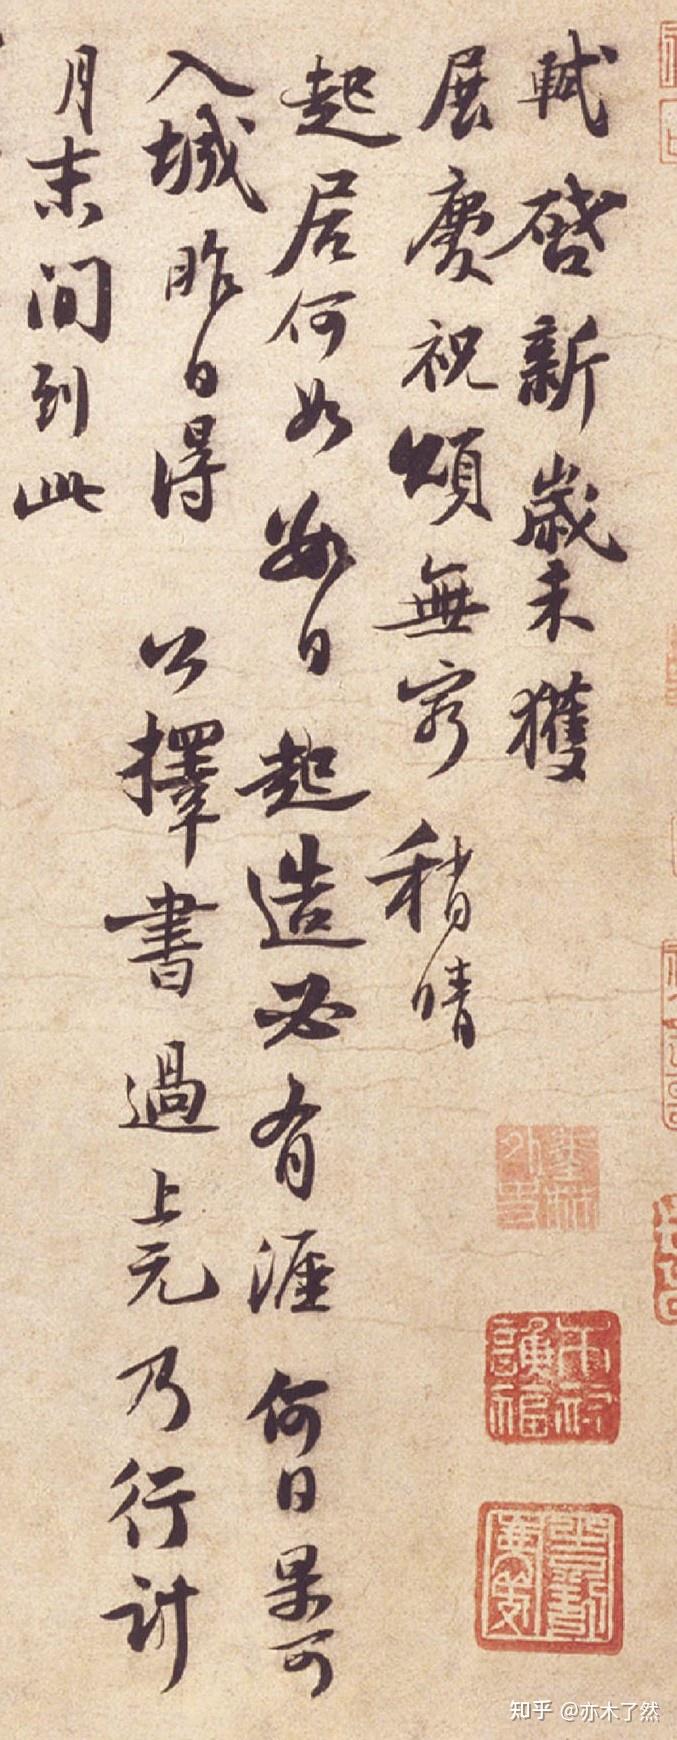 軾啓新歲未獲
展慶祝頌無窮稍晴
起居何如數日起造必有涯何日果可
入城昨日得公擇書過上元乃行計
月末間到此
知乎 @亦木了然